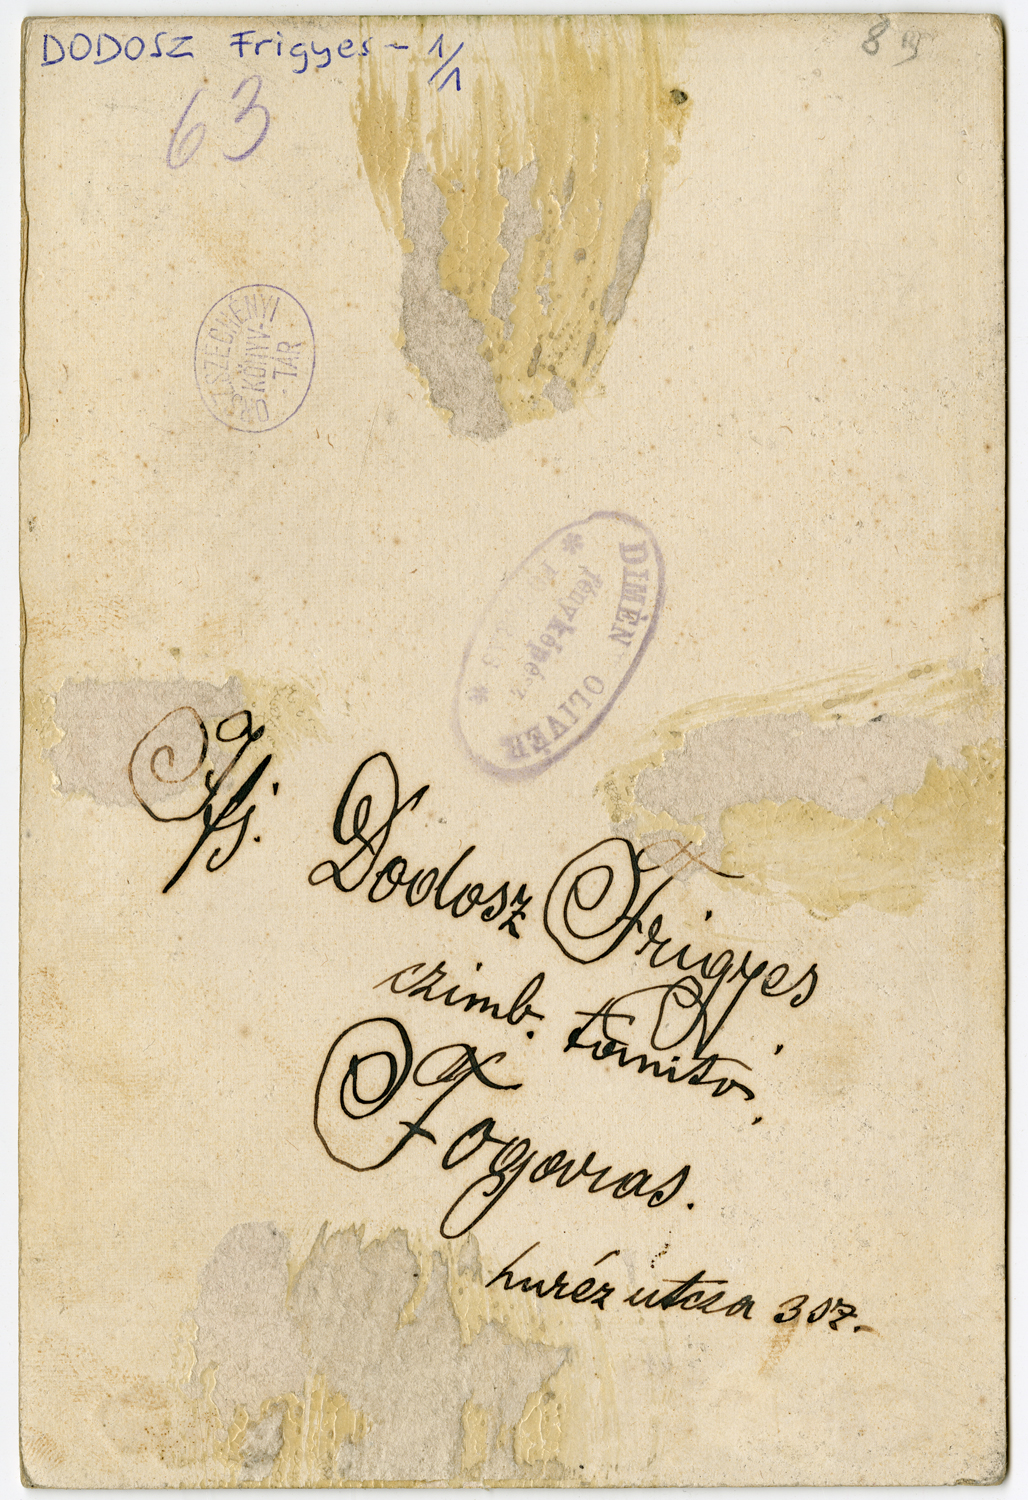 DODOSZ Frigyes - 1/1
8
63
SZÉCHÉNYI
KÖNYV-
TÁR
DIMÉN OLIVÉR
fényképész
Ifj. Dodosz Frigyes
czimb. tanitó.
Fogaras.
huréz utcza 3 sz.